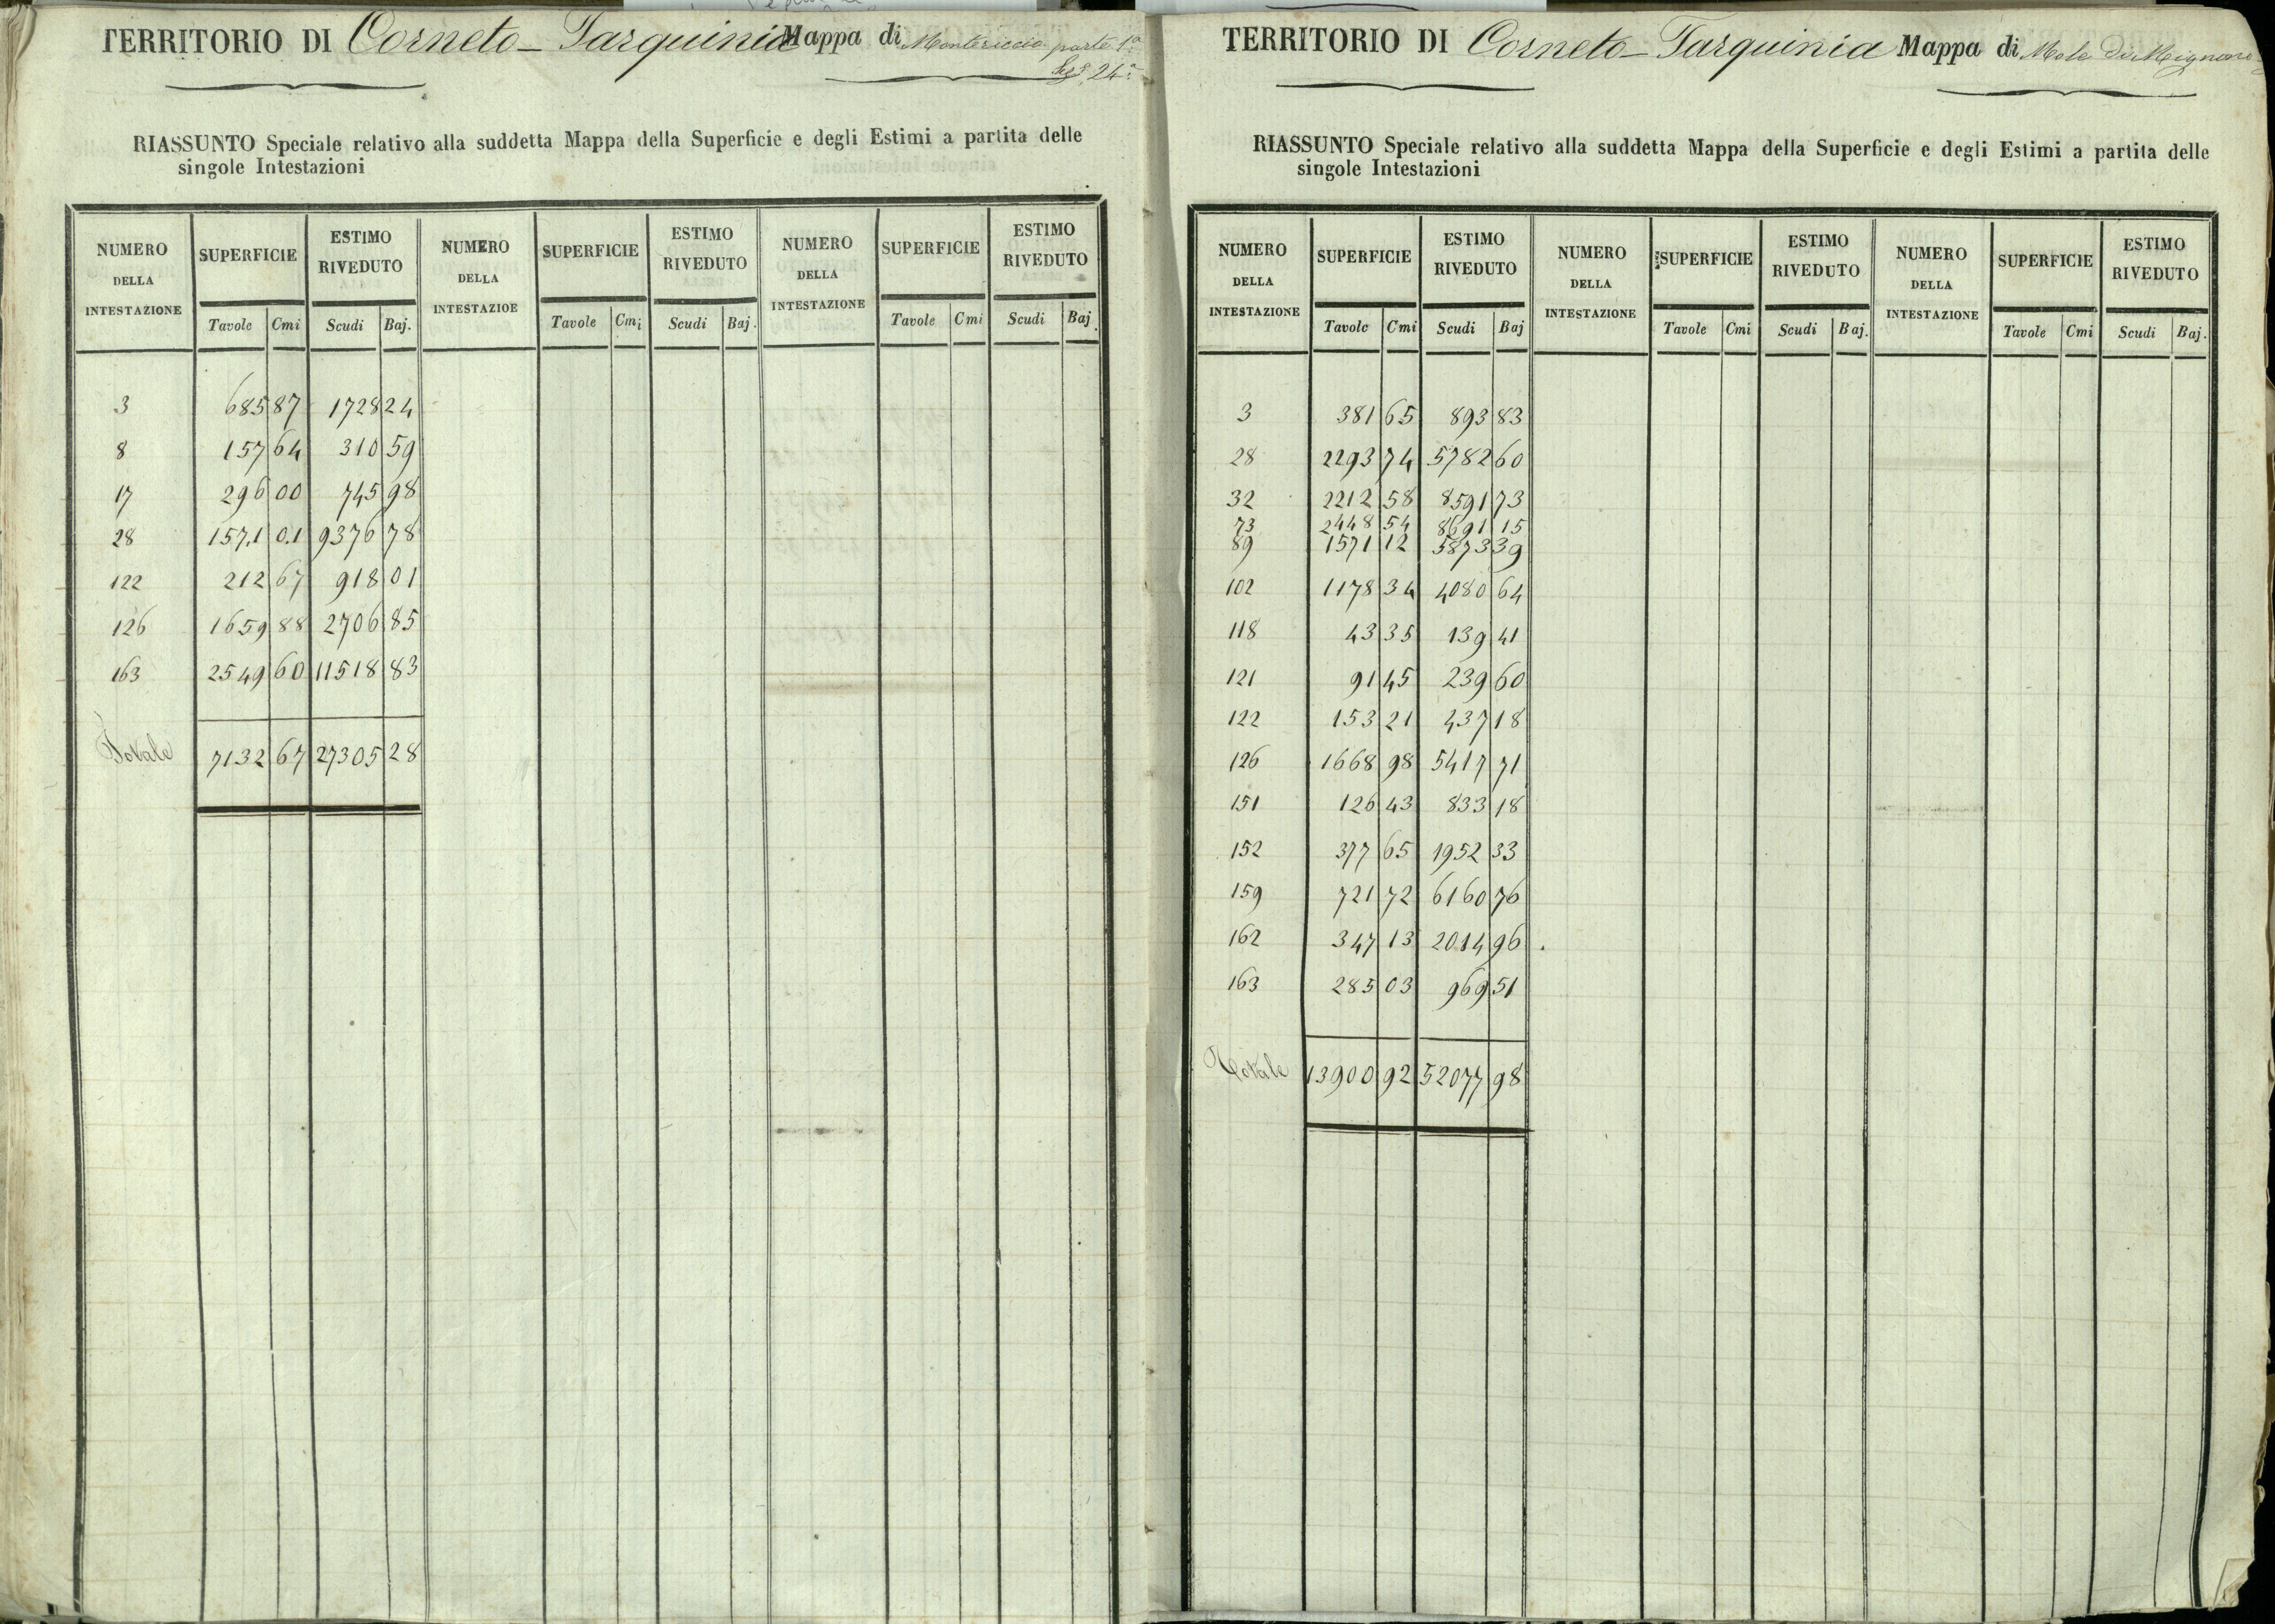 TERRITORIO DI Corneto-Tarquinia Mappa di Montericcio parte 1ª
Sez. 24ª
RIASSUNTO Speciale relativo alla suddetta Mappa della Superficie e degli Estimi a partita delle
singole Intestazioni
NUMERO DELLA INTESTAZIONE SUPERFICIE ESTIMO RIVEDUTO NUMERO DELLA INTESTAZIOE SUPERFICIE ESTIMO RIVEDUTO NUMERO DELLA INTESTAZIONE SUPERFICIE ESTIMO RIVEDUTO
Tavole Cmi Scudi Baj. Tavole Cmi Scudi Baj. Tavole Cmi Scudi Baj.
3 685 87 1728 24
8 157 64 310 59
17 296 00 745 98
28 1571 01 9376 78
122 212 67 918 01
126 1659 88 2706 85
163 2549 60 11518 83
Totale 7132 67 27305 28
TERRITORIO DI Corneto-Tarquinia Mappa di Mole di Mignone
RIASSUNTO Speciale relativo alla suddetta Mappa della Superficie e degli Estimi a partita delle
singole Intestazioni
NUMERO DELLA INTESTAZIONE SUPERFICIE ESTIMO RIVEDUTO NUMERO DELLA INTESTAZIONE SUPERFICIE ESTIMO RIVEDUTO NUMERO DELLA INTESTAZIONE SUPERFICIE ESTIMO RIVEDUTO
Tavole Cmi Scudi Baj Tavole Cmi Scudi Baj. Tavole Cmi Scudi Baj.
3 381 65 893 83
28 2293 74 5782 60
32 2212 58 8591 73
73 2448 54 8691 15
89 1571 12 5873 39
102 1178 34 4080 64
118 43 35 139 41
121 91 45 239 60
122 153 21 437 18
126 1668 98 5417 71
151 126 43 833 18
152 377 65 1952 33
159 721 72 6160 76
162 347 13 2014 96
163 285 03 969 51
Totale 13900 92 52077 98